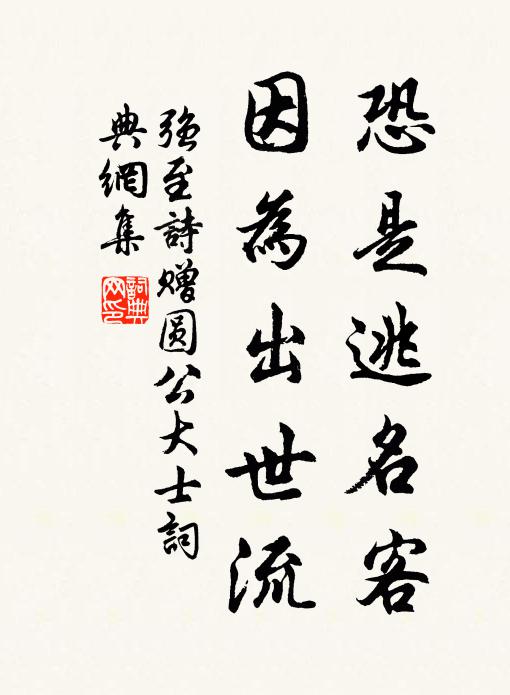 恐是逃名客
因為出世流
強至詩贈圆公大士詞
典網集
詞典
网印